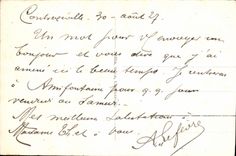 Contrexéville - 30 - août 27.
Un mot pour v. envoyer un
bonjour et vous dire que j'ai
amené ici le beau temps. Je rentrerai
à Amifontaine pour q.q. jours
vendredi ou samedi.
Mes meilleures Salutations à
Madame E. et à vous.
A. Lefèvre